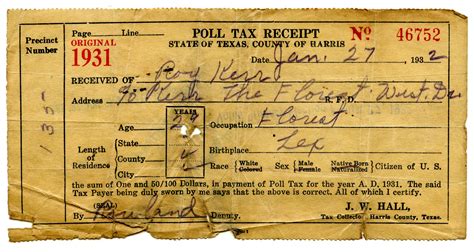 POLL TAX RECEIPT
Nº 46752
STATE OF TEXAS, COUNTY OF HARRIS
Precinct Number
Page: Line:
ORIGINAL
1931
Date Jan. 27 1932
RECEIVED OF Roy Kerr
Address % Kerr The Florist West. R.F.D.
135
YEARS
Age 29 Occupation Florist
Length of Residence
State
County
City
Birthplace: Tex
Race White Colored Sex Male Female Native Born Naturalized Citizen of U. S.
the sum of One and 50/100 Dollars, in payment of Poll Tax for the year A. D. 1931. The said
Tax Payer being duly sworn by me says that the above is correct. All of which I certify.
By Deputy.
J. W. HALL,
Tax Collector Harris County, Texas.